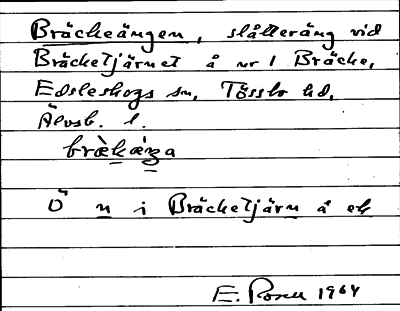 Bräckeängen, slåtteräng vid
Bräcketjärnet å nr 1 Bräcke,
Edsleskogs sn, Tössbo hd,
Älvsb. l.
bræ̀kæ̀ŋa
Ö n i Bräcketjärn å ek
E. Rosen 1964